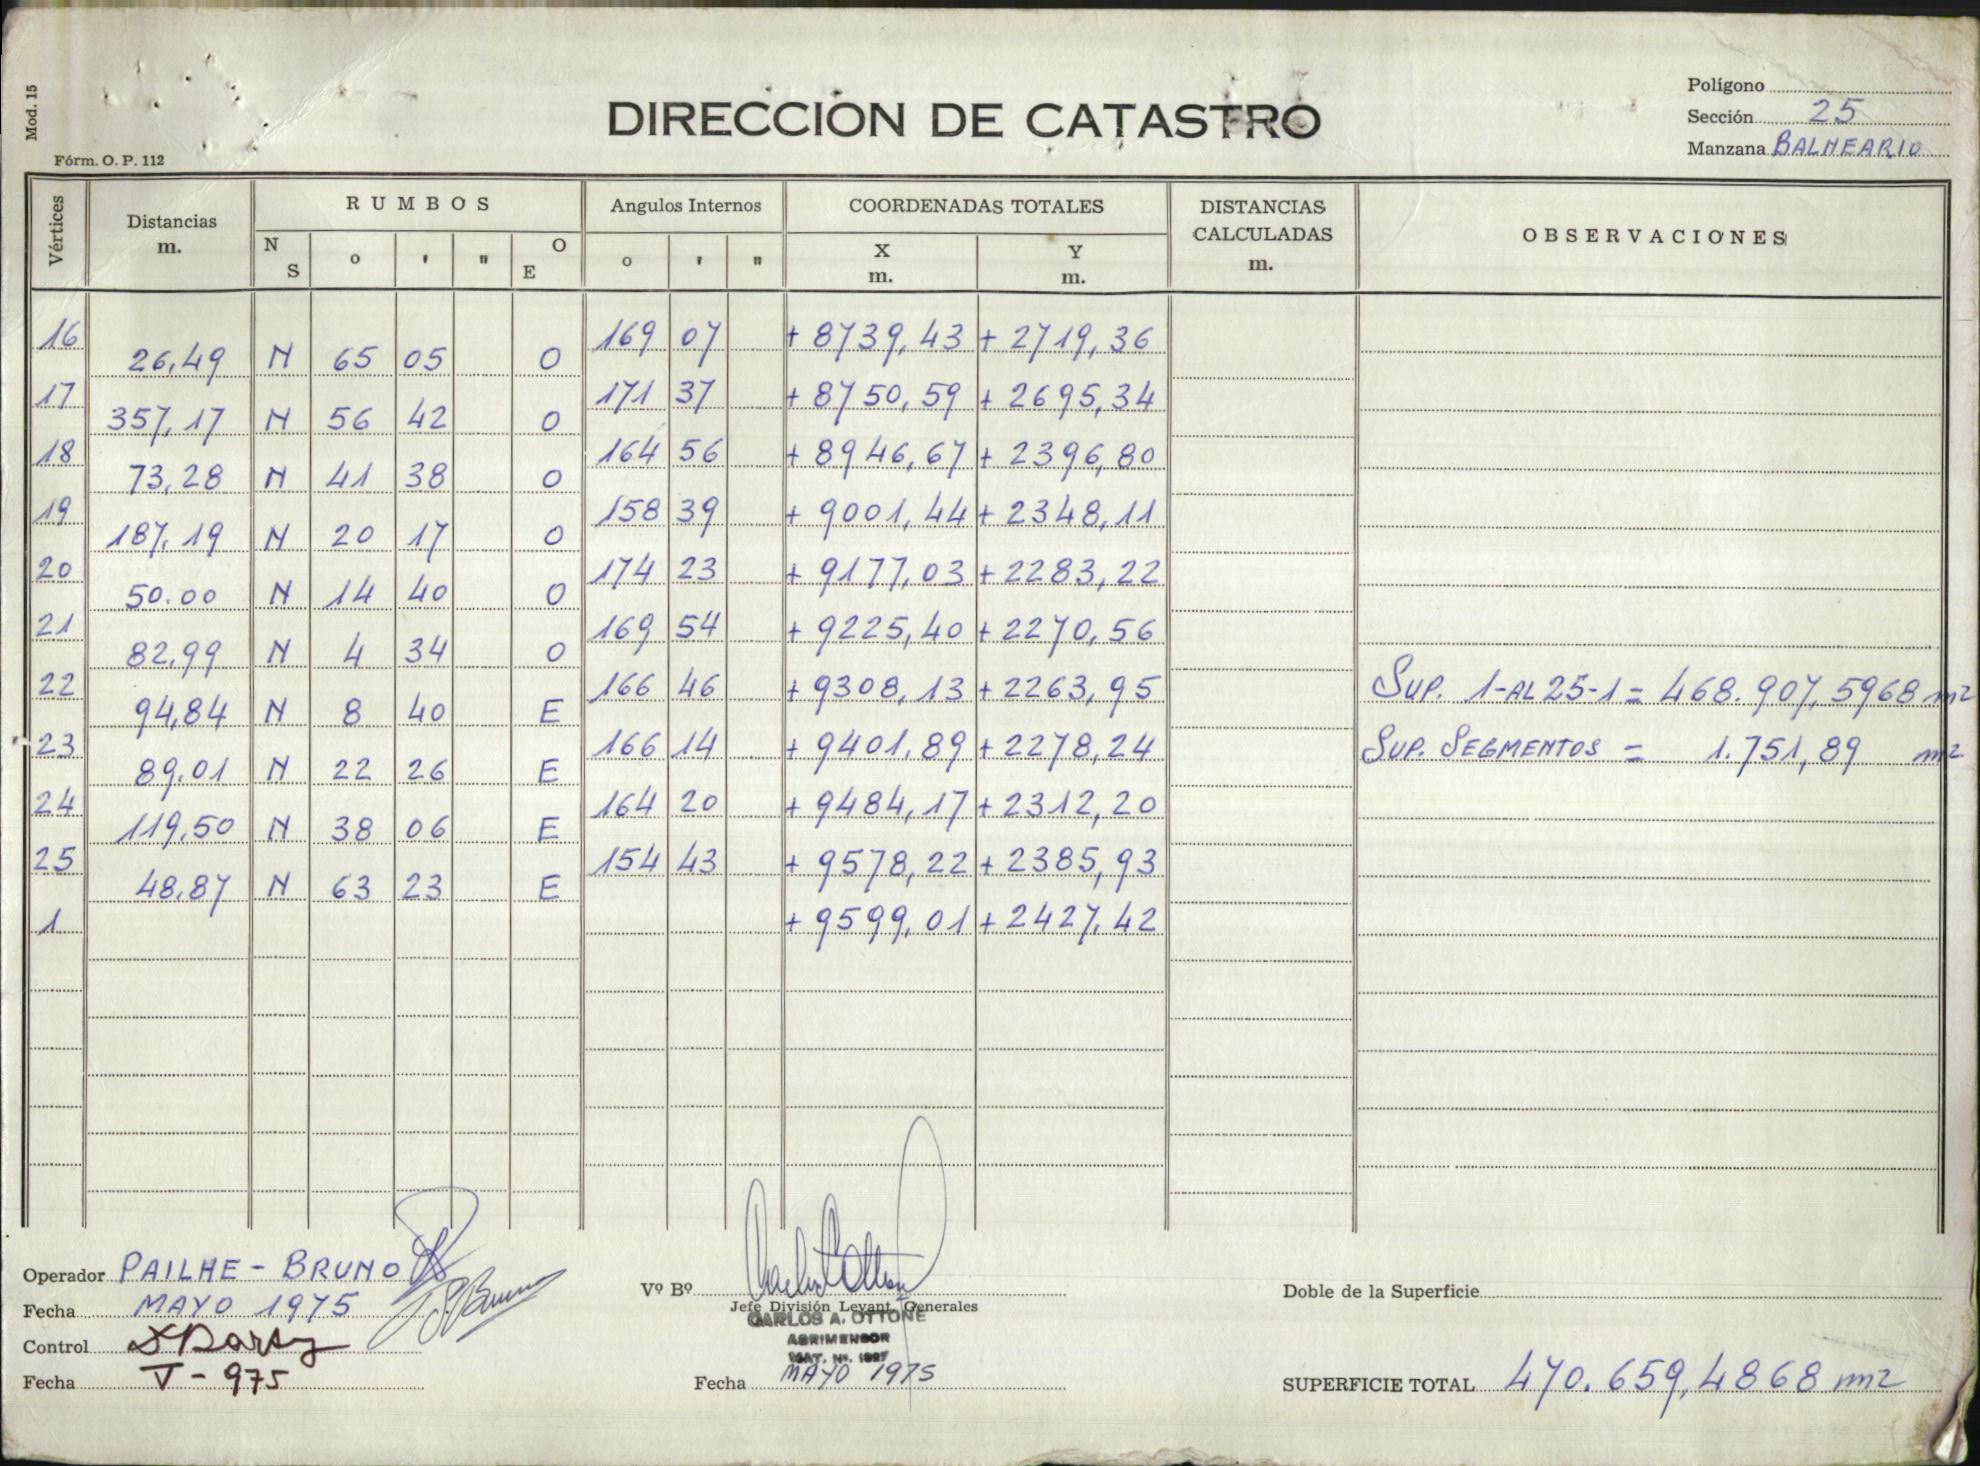 Mod. 15
Fórm. O. P. 112
DIRECCION DE CATASTRO
Polígono
Sección 25
Manzana BALNEARIO
Vértices
Distancias m.
RUMBOS
N S o ' " O E
Angulos Internos
o ' "
COORDENADAS TOTALES
X m. Y m.
DISTANCIAS CALCULADAS m.
OBSERVACIONES
16 169 07 + 8739,43 + 2719,36
26,49 N 65 05 O
17 171 37 + 8750,59 + 2695,34
357,17 N 56 42 O
18 164 56 + 8946,67 + 2396,80
73,28 N 41 38 O
19 158 39 + 9001,44 + 2348,11
187,19 N 20 17 O
20 174 23 + 9177,03 + 2283,22
50.00 N 14 40 O
21 169 54 + 9225,40 + 2270,56
82,99 N 4 34 O
22 166 46 + 9308,13 + 2263,95 SUP. 1-AL 25-1 = 468.907,5968 m2
94,84 N 8 40 E
23 166 14 + 9401,89 + 2278,24 SUP. SEGMENTOS = 1.751,89 m2
89,01 N 22 26 E
24 164 20 + 9484,17 + 2312,20
119,50 N 38 06 E
25 154 43 + 9578,22 + 2385,93
48,87 N 63 23 E
1 + 9599,01 + 2427,42
Operador PAILHE - BRUNO
Fecha MAYO 1975
Control
Fecha V - 975
Vº Bº
Jefe División Levant. Generales
CARLOS A. OTTONE
AGRIMENSOR
MAT. Nº.
Fecha MAYO 1975
Doble de la Superficie
SUPERFICIE TOTAL 470.659,4868 m2